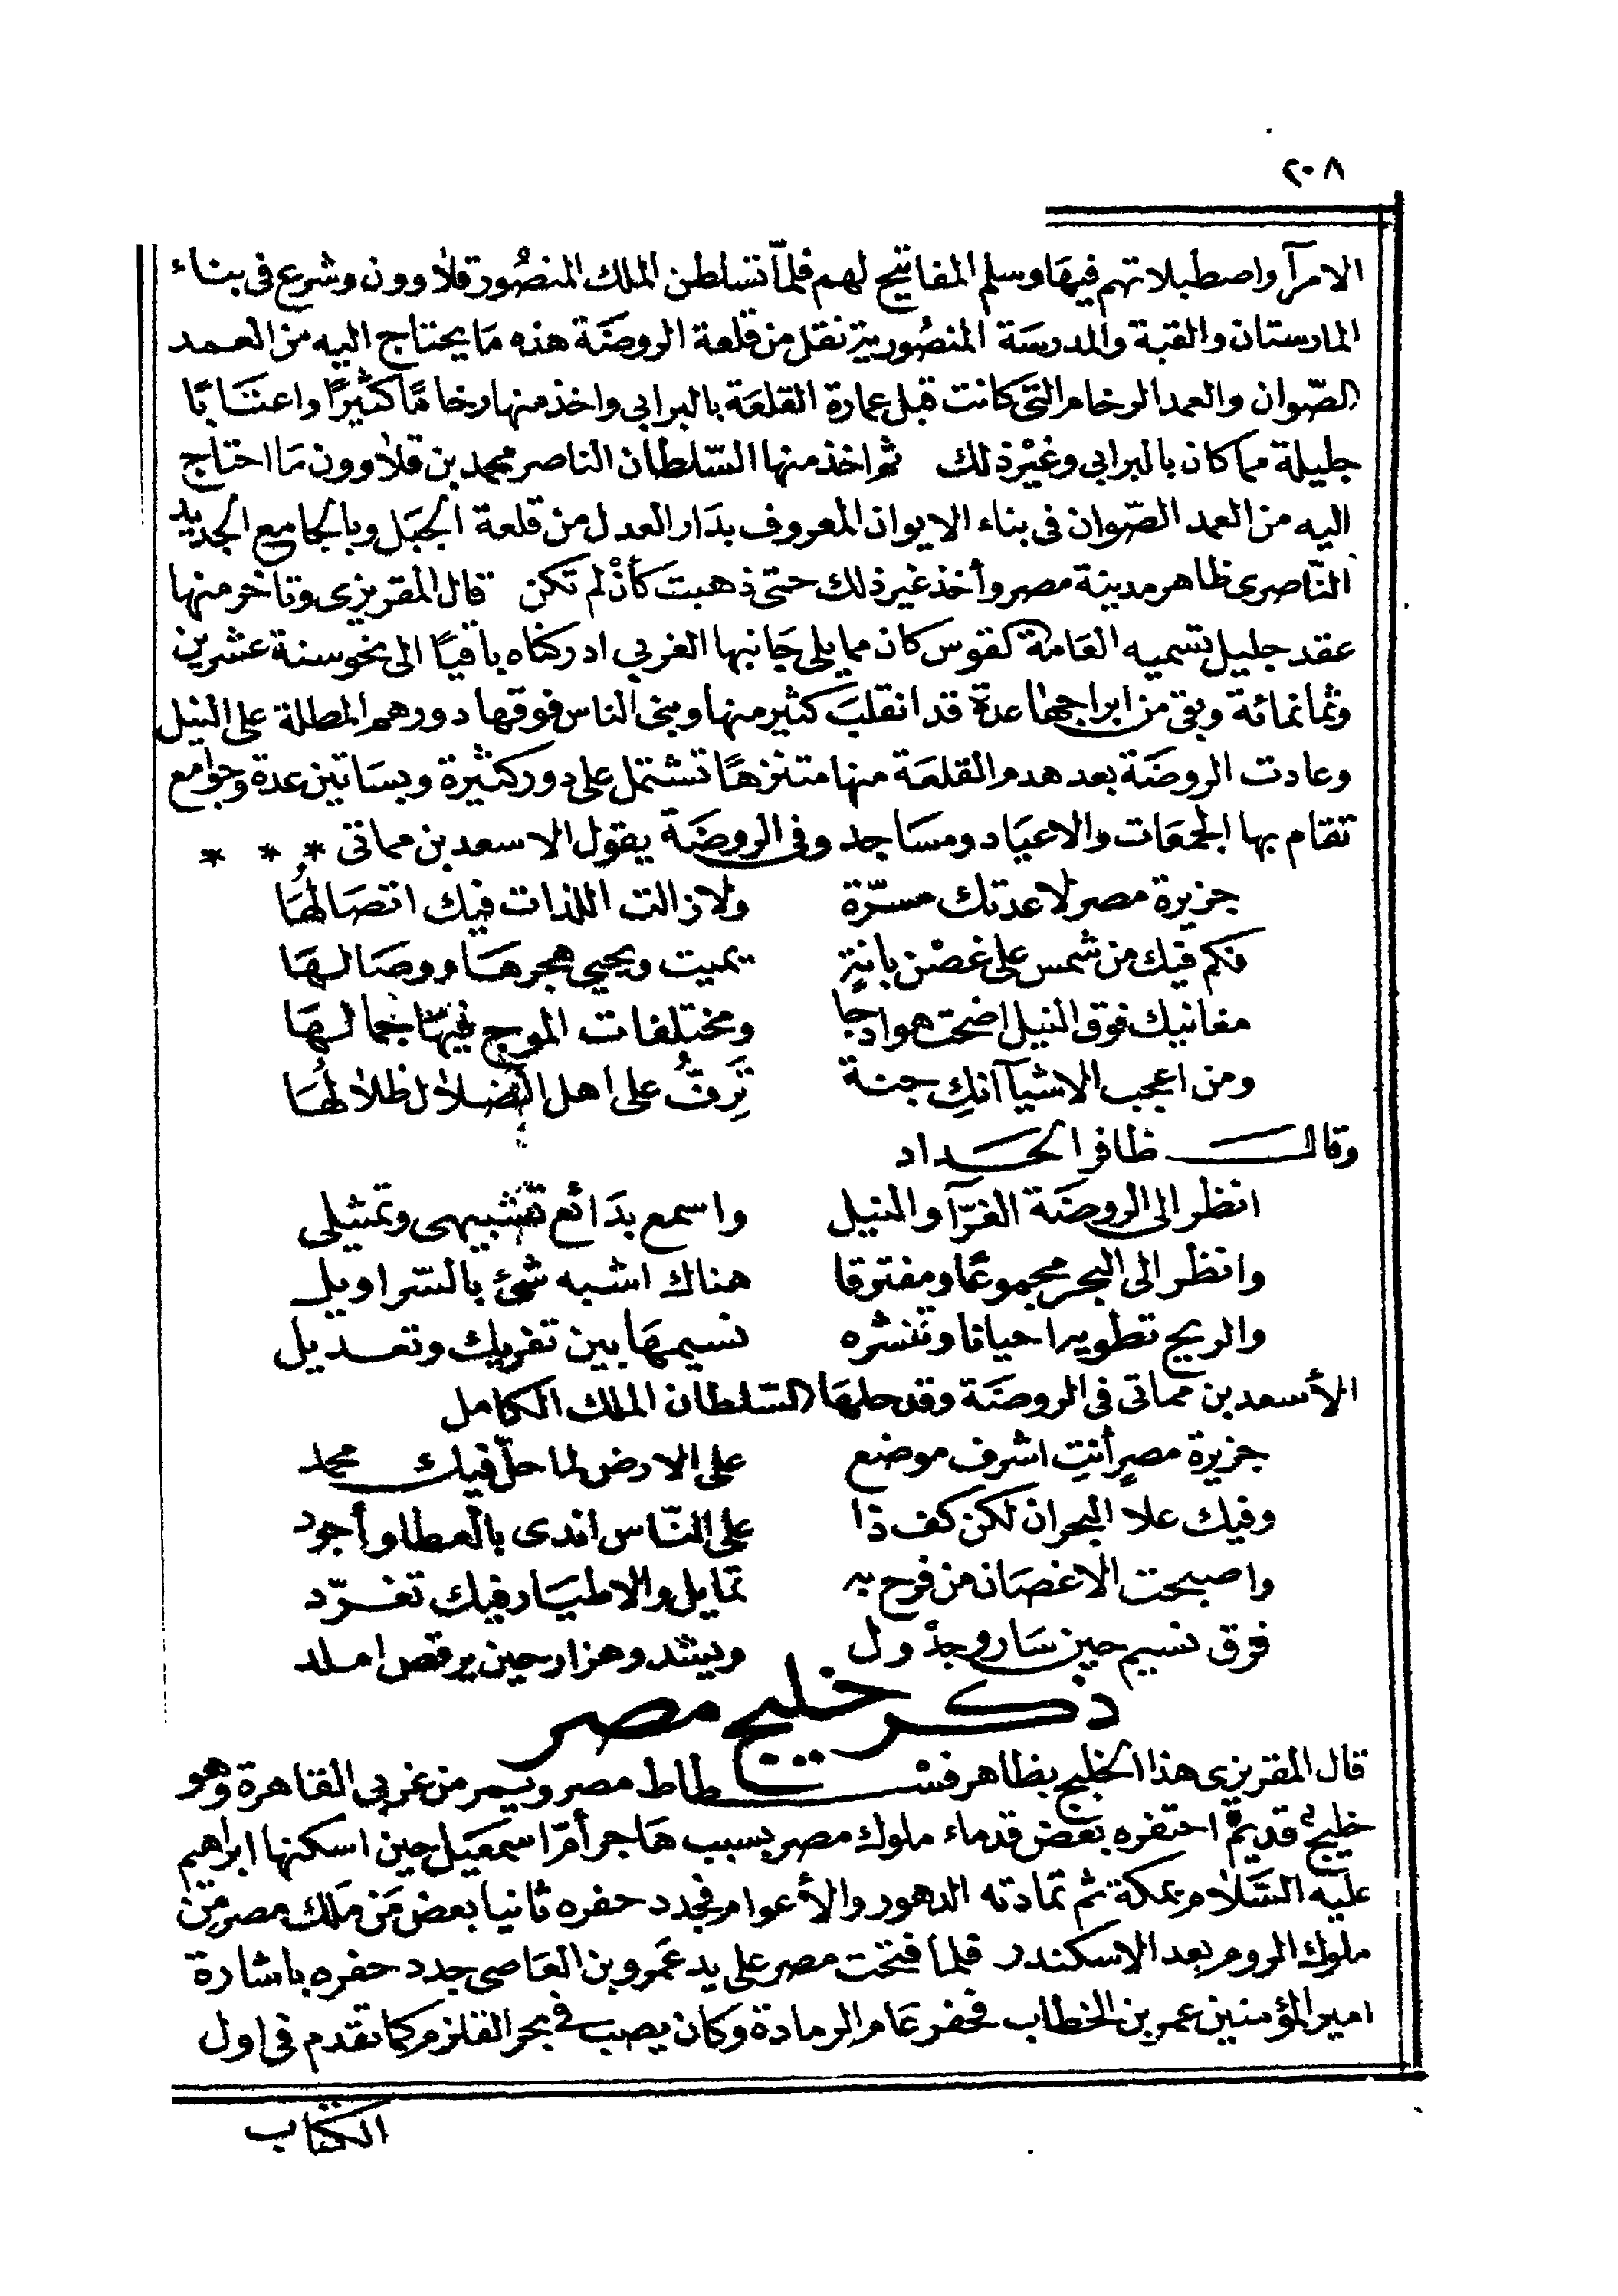 ٢٠٨
الامرآ واصطبلاتهم فيها وسلم المفاتيح لهم فلمّا تسلطن الملك المنصُور قلاوون وشرع فى بناء
المارستان والقبة والمدرسَة المنصُوريّة نقل من قلعة الروضَة هذه مَا يحتاج اليه من العمد
الصّوان والعمد الرخام التى كانت قبل عمارة القلعَة بالبرابى واخذ منها رخامًا كثيرًا واعتَابًا
جليلة مما كان بالبرابى وغيْر ذلك ثم اخذ منها السّلطان الناصر محمد بن قلاوون مَا احتاج
اليه من العمد الصّوان فى بناء الايوان المعروف بدَار العدل من قلعة الجبَل وبالجامع الجديد
النّاصرى ظاهر مدينة مصر وأخذ غير ذلك حتى ذهبتَ كأنْ لم تكن قال المقريزى وتأخر منها
عقد جليل تسميه العَامة القوس كان مما يلى جَانبها الغربي ادركناه باقيًا الى نحو سنة عشرين
وثمانمائة وبقى من ابراجها عدة قد انقلبَ كثير منها وبنى الناس فوقها دورهم المطلة على النيل
وعادت الروضَة بعد هدم القلعَة منها متنزهًا تشتمل على دور كثيرة وبسَاتين عدة وجوامع
تقام بها الجمعَات والاعيَاد ومسَاجد وفى الروضَة يقول الاسعد بن مماتى * * *
جزيرة مصر لا عدتك مسرّة ولا زالت اللذات فيك اتصَالُهَا
فكم فيك من شمس على غصْن بانةٍ يميت ويحيى هجرهَا ووصَالهَا
مغانيك فوق النيل اضحت هوادجا ومختلفات الموج فيهَا جمالهَا
ومن اعجب الاشيآ انكِ جنة تَرِفُّ على اهل الضلال ظلالُهَا
وقال ظافر الحَداد
انظر الى الروضَة الغرّآ والنيل واسمع بدَائع تشبيهى وتمثيلى
وانظر الى البحر مجموعًا ومفترقا هناك اشبه شئ بالسّراويل
والريح تطويه احيانا وتنشره نسيمهَا بين تفريك وتعديل
الأسعد بن مماتى فى الروضَة وقد حلهَا السّلطان الملك الكامل
جزيرة مصرٍ أنتِ اشرف موضع على الارض لما حلّ فيك محمد
وفيك علا البحران لكن كف ذا على النّاس اندى بالعطا وأجود
واصبحت الاغصَان من فرح به تمايل والاطيَار فيك تغرّد
فرق نسيم حين سَار وجدْول وينشد وهزار حين يرقص املد
ذكر خليج مصر
قال المقريزى هذا الخليج بظاهر فسطاط مصر ويمر من غربى القاهرة وهو
خليجٌ قديمٌ احتفره بعض قدماء ملوك مصر بسبب هَاجر أمّ اسمعيَل حين اسكنها ابراهيم
عليه السَّلام بمكة ثم تمادته الدهور والأعوام فجدد حفره ثانيا بعض مَن مَلك مصر مِن
ملوك الروم بعد الاسكندر فلما فتحت مصر على يد عَمرو بن العَاصى جدد حفره باشارة
امير المؤمنين عمر بن الخطاب فحفر عَام الرمادة وكان يصب فى بحر القلزم كما تقدم فى اول
الكتاب